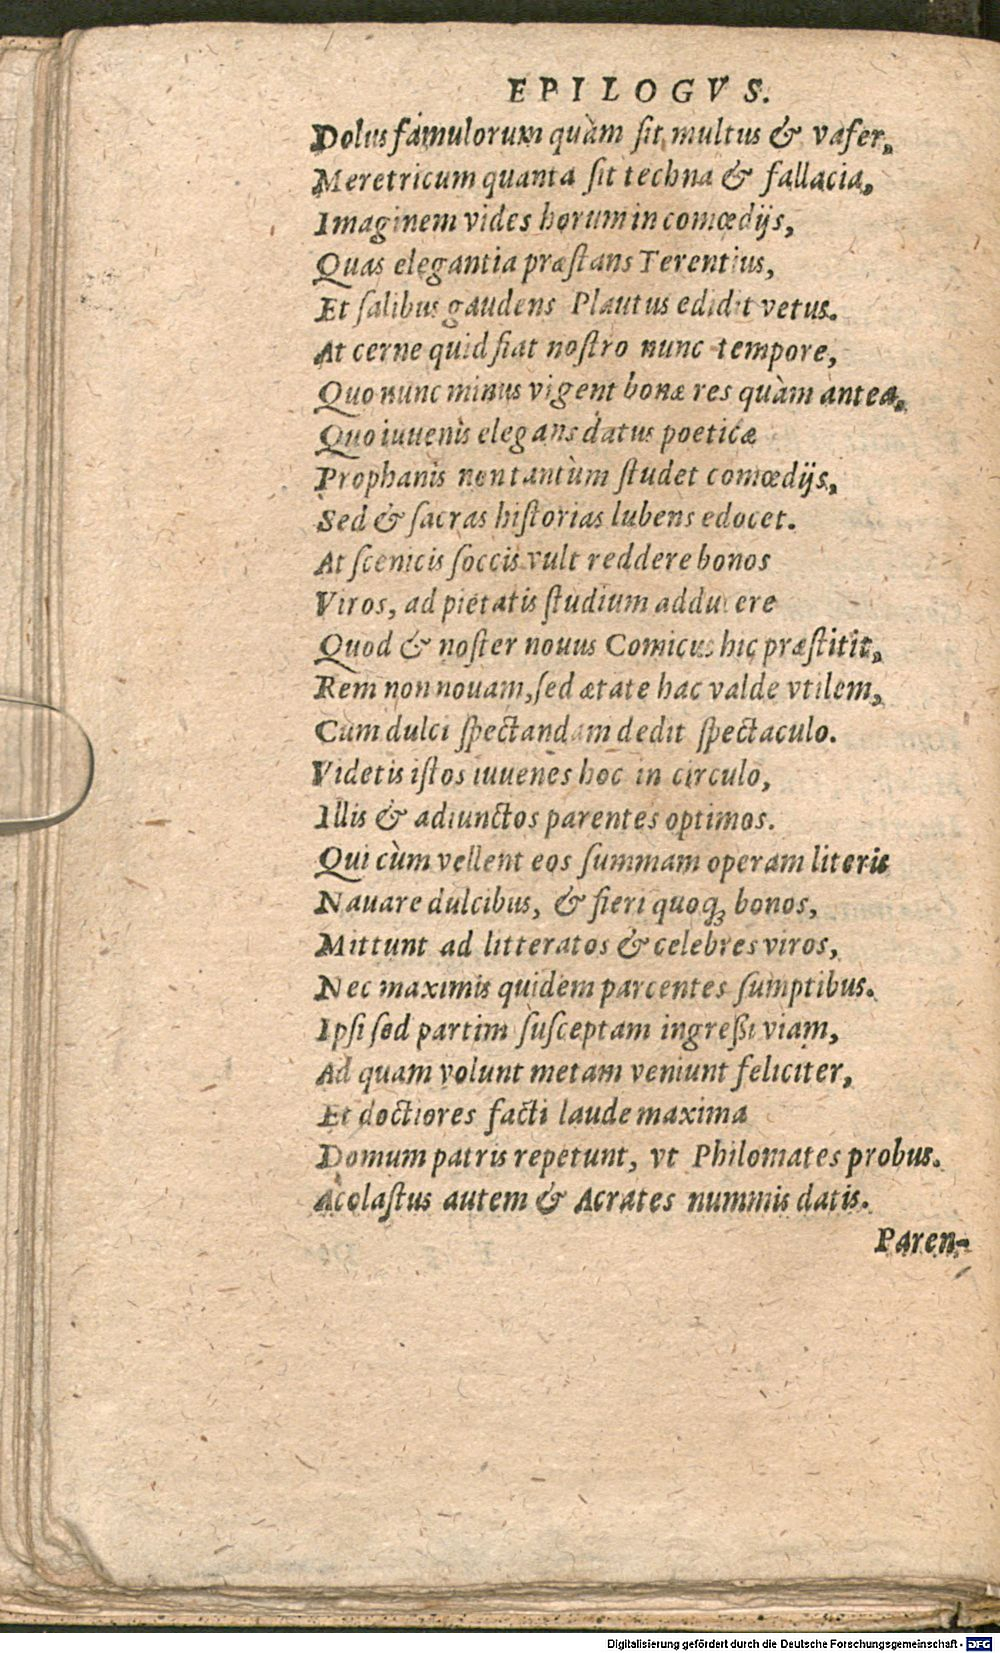 EPILOGVS.
Dolus famulorum quàm ſit multus & vafer,
Meretricum quanta ſit techna & fallacia,
Imaginem vides horum in comœdijs,
Quas elegantia præſtans Terentius,
Et ſalibus gaudens Plautus edidit vetus.
At cerne quid fiat noſtro nunc tempore,
Quo nunc minus vigent bonæ res quàm antea,
Quo iuuenis elegans datus poeticæ
Prophanis non tantùm ſtudet comœdijs,
Sed & ſacras hiſtorias lubens edocet.
At ſcenicis ſoccis vult reddere bonos
Viros, ad pietatis ſtudium adducere
Quod & noſter nouus Comicus hic præſtitit,
Rem non nouam, ſed ætate hac valde vtilem,
Cum dulci ſpectandam dedit ſpectaculo.
Videtis iſtos iuuenes hoc in circulo,
Illis & adiunctos parentes optimos.
Qui cùm vellent eos ſummam operam literis
Nauare dulcibus, & fieri quoq; bonos,
Mittunt ad litteratos & celebres viros,
Nec maximis quidem parcentes ſumptibus.
Ipſi ſed partim ſuſceptam ingreßi viam,
Ad quam volunt metam veniunt feliciter,
Et doctiores facti laude maxima
Domum patris repetunt, vt Philomates probus.
Acolaſtus autem & Acrates nummis datis.
Paren-
Digitalisierung gefördert durch die Deutsche Forschungsgemeinschaft - DFG